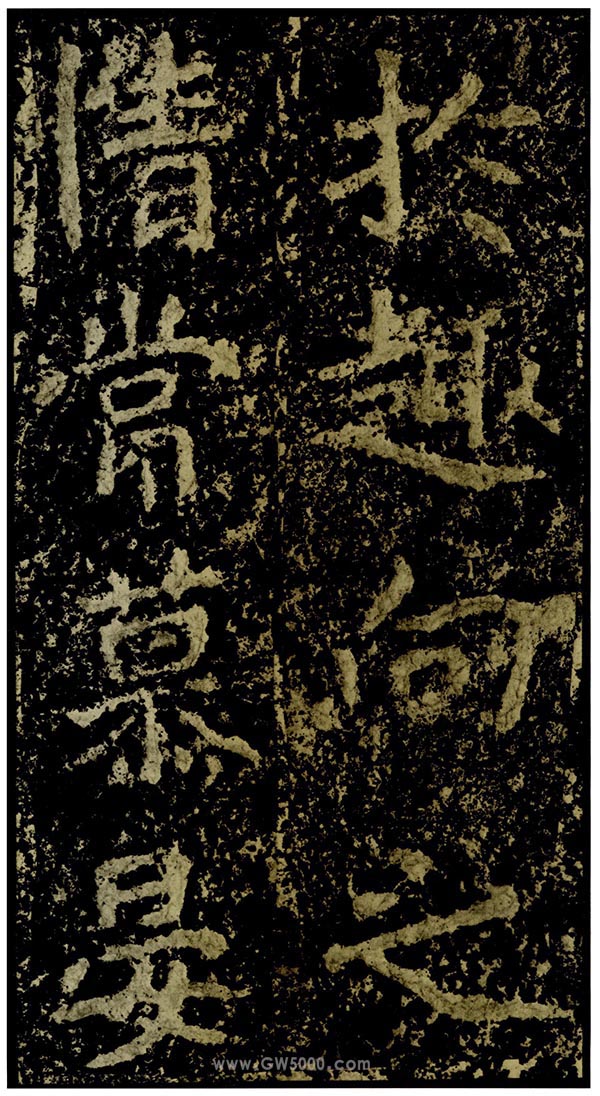 於趣向之
情常慕晏
www.GW5000.com